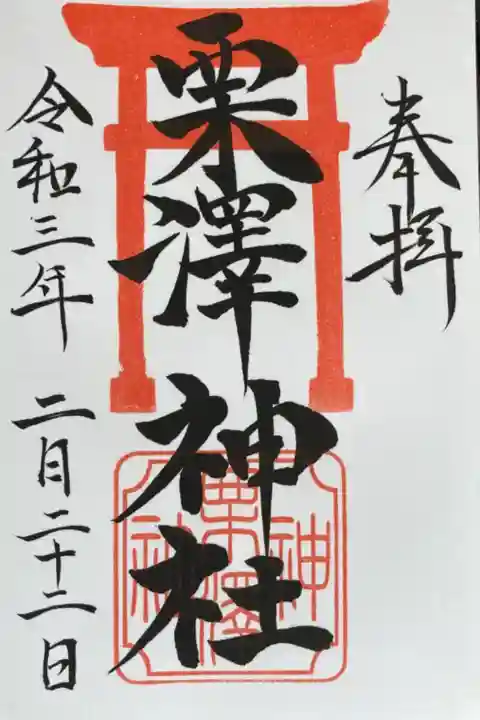 奉拝
栗澤神社
令和三年 二月二十二日
栗澤
神
社